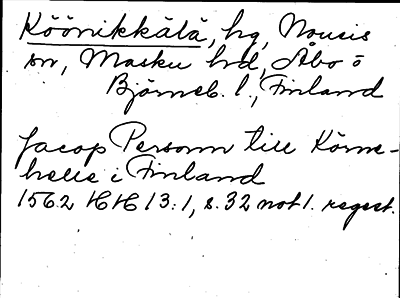 Köönikkälä, hg, Nousis
sn, Masku hd, Åbo o
Björneb. l., Finland
Jacop Personn till Körne-
helle i Finland
1562 HH 13:1, s. 32 not 1. regest.